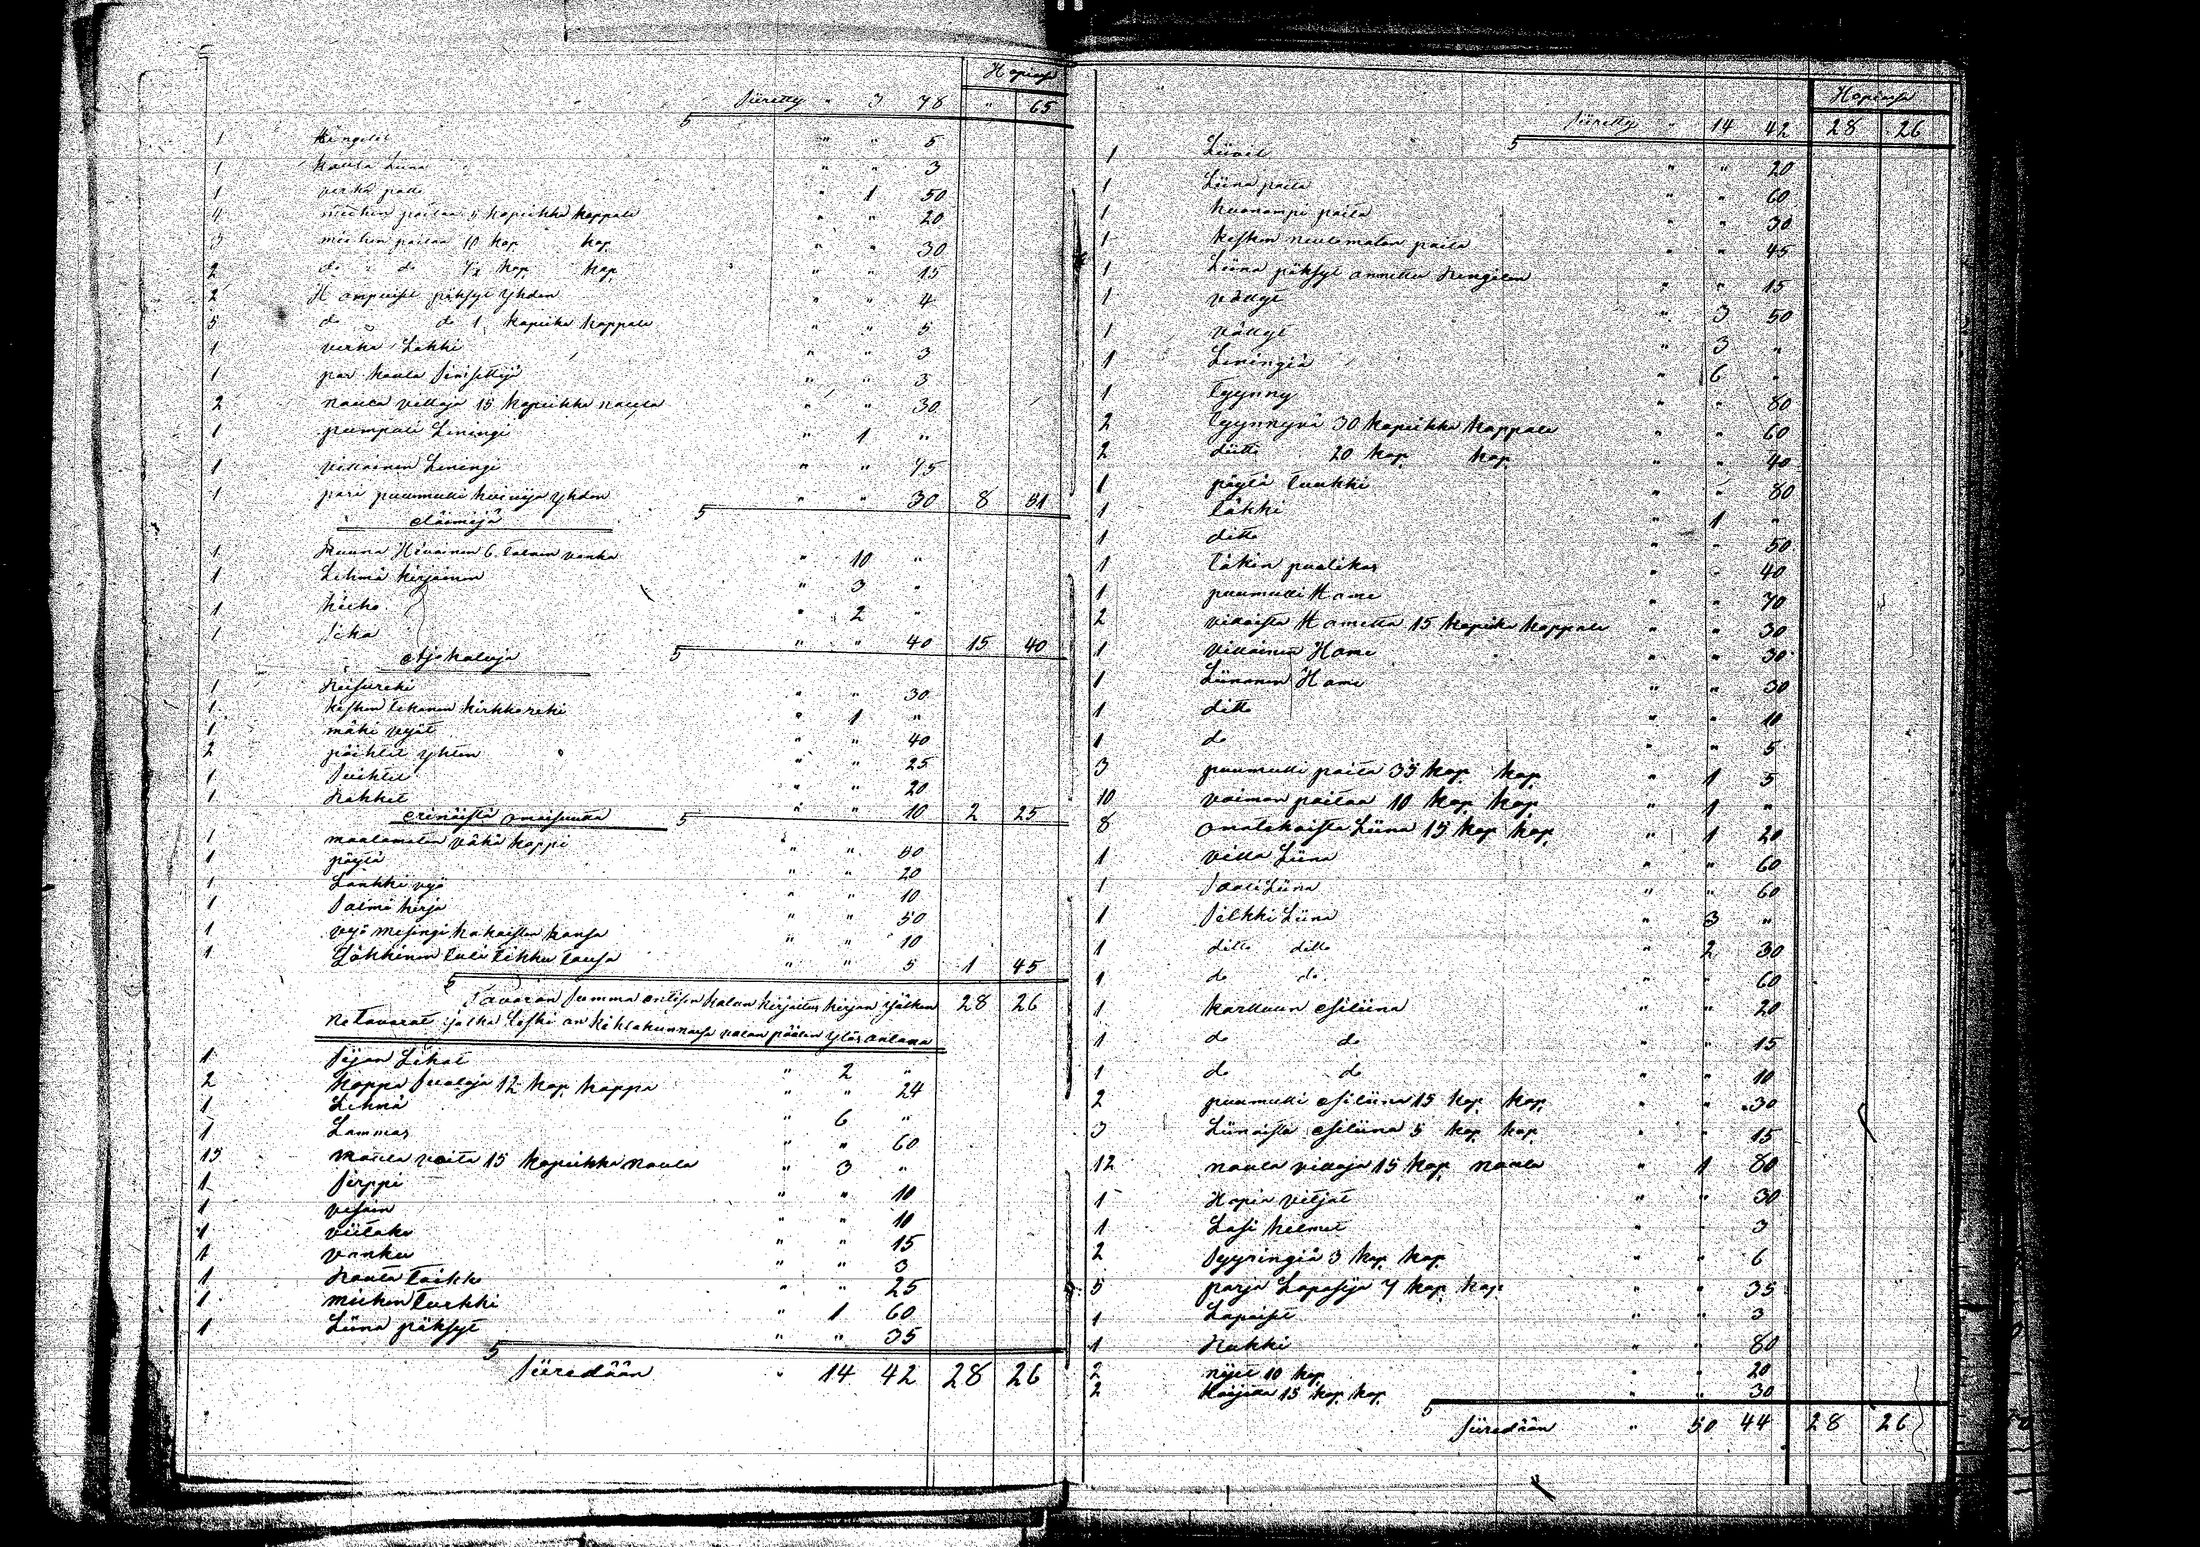 Hopiassa
Siiretty " 3 78 " 65
1 Kengelit " " 5
1 Kaula Liina " " 3
1 verka " 1 50
4 miehen paitaa 5 kopeikka kappale " " 20
3 miehen paitaa 10 kop kap " " 30
2 do " do 7½ kop kap " " 15
2 Hampuiset pöksyt yhden " " 4
5 do do 1 kopeika kappale " " 5
1 verka Lakki " " 3
1 par kaula " " 3
2 naula villoja 15 kopeikka naula " " 30
1 pumpuli Leningi " 1 "
1 villainen Leningi " " 75
1 pari puumulli yhden " " 30 8 51
Eläimiä
1 Ruuna Hevoinen 6. talven vanha " 10 "
1 Lehmä kirjainen " 3 "
1 hieho " 2 "
1 Sika " " 40 15 40
Ajokaluja
1 Reisureki " " 30
1 kesken tekonen kirkkoreki " 1 "
1 mäki vyöt " " 40
2 päihtet yhten " " 25
1 Suihtet " " 20
1 Rahket " " 10 2 25
Erinäistä omaisuutta
1 maalamaton vähä kappi " " 50
1 pöytä " " 20
1 Lankki vyö " " 10
1 Salmi kirja " " 50
1 vyö mesingi hakaisten kansa " " 10
1 Läkkinen tuli tikku toosa " " 5 1 45
Tavaran Summa entisen kalun kirjoitus kirjan jälken 28 26
Ne tavarat jotka Leski on kihlakunnassa valan päälen ylös antana
1 Sijan Lihat " 2 "
2 kappa Suoloja 12 kop kappa " " 24
1 Lehmä " 6 "
1 Lammas " " 60
15 naula voita 15 kopeikka naula " 3 "
1 Sirppi " " 10
1 vesain " " 10
1 viitake " " 15
1 vanku " " 3
1 Rauta " " 25
1 miehen turkki " 1 60
1 Liina pöksyt " " 35
Siiredään " 14 42 28 26
Hopiassa
Siiretty " 14 42 28 26
1 Liivit " " 20
1 Liina paita " " 60
1 huonompi paita " " 30
1 kesken neulomaton paita " " 45
1 Liina pöksyt annettu Rengilen " " 15
1 vällyt " 3 50
1 vällyt " 3 "
1 Leningiä " 6 "
1 tyynny " " 80
2 tyynnyä 30 kopeikka kappale " " 60
2 ditto 20 kop kap " " 40
1 pöytä tuukki " " 80
1 täkki " 1 "
1 ditto " " 50
1 täkin puolikas " " 40
1 puumulli Hame " " 70
2 villaista Hametta 15 kopeika kappale " " 30
1 villainen Hame " " 30
1 Liinanen Hame " " 30
1 ditto " " 10
1 do " " 5
3 puumulli paita 35 kop kap " 1 5
10 vaimon paitaa 10 kop kap " 1 "
8 Liina 15 kop kap " 1 20
1 villa Liina " " 60
1 Saali Liina " " 60
1 Silkki Liina " 3 "
1 ditto ditto " 2 30
1 do do " " 60
1 karttuun esiliina " " 20
1 do do " " 15
1 do do " " 10
2 puumulli esiliina 15 kop kap " " 30
3 Liinaista esiliina 5 kop kap " " 15
12 naula villoja 15 kop naula " 1 80
1 Hopia vitjat " " 30
1 Lasi helmet " " 3
2 Syyringiä 3 kop kap " " 6
5 parja Lapasija 7 kop kap " " 35
1 Lapaiset " " 3
1 Rukki " " 80
2 10 kop " " 20
2 15 kop kap " " 30
Siiredään " 50 44 28 26